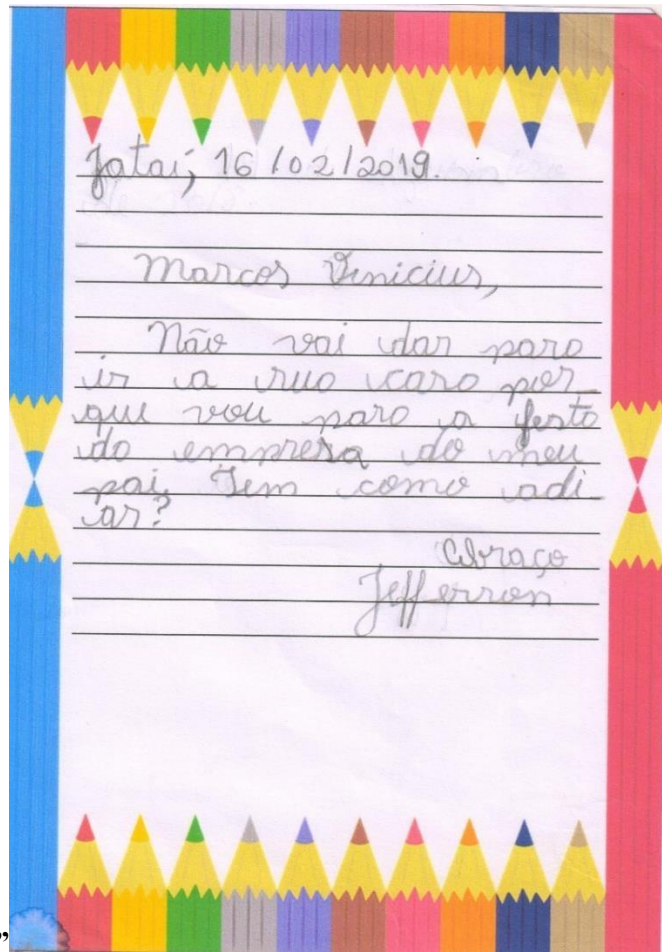 Jataí, 16/02/2019.
Marcos Vinicius,
Não vai dar para
ir a sua casa por
que vou para a festa
da empresa do meu
pai. Tem como adi-
ar?
Abraço
Jefferson
”